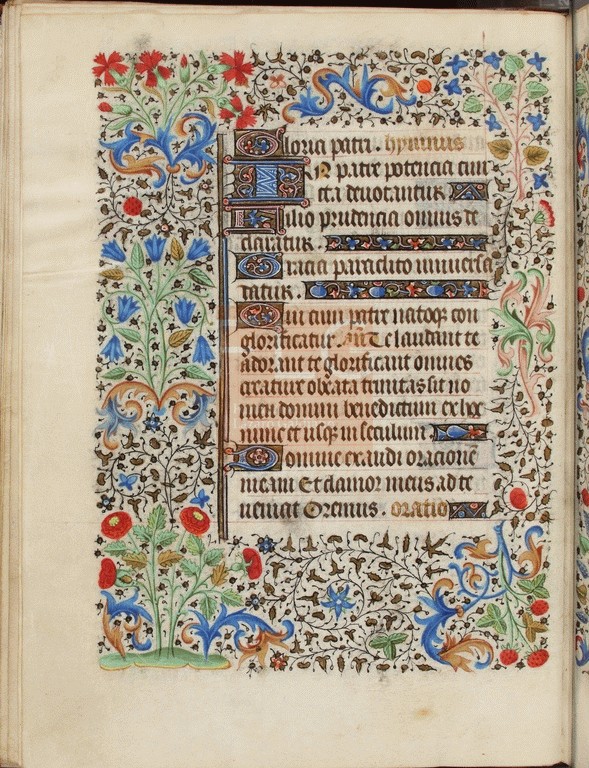 Gloria patri. hymnus
IN patre potencia cun
cta devotantur
Filio prudencia omnis de
claratur.
Gracia paraclito universa
datur.
Qui cum patre natoq; con
glorificatur. ant Te laudant te
adorant te glorificant omnes
creature o beata trinitas sit no
men domini benedictum ex hoc
nunc et usq; in seculum
Domine exaudi oracionē
meam Et clamor meus ad te
veniat Oremus. oratio